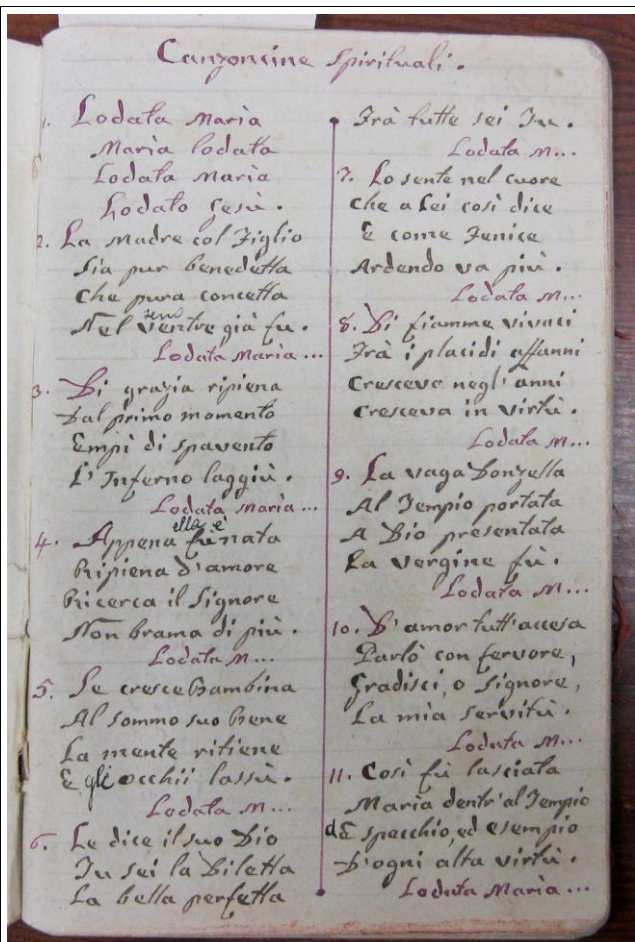 Canzoncine Spirituali.
1. Lodata Maria
Maria lodata
Lodata Maria
Lodato Gesù.
2. La Madre col Figlio
Sia pur benedetta
Che pura concetta
seno
Nel ventre già fu.
Lodata Maria...
3. Di grazia ripiena
Dal primo momento
Empì di spavento
L'Inferno laggiù.
Lodata Maria...
ella è
4. Appena fù nata
Ripiena d'amore
Ricerca il Signore
Non brama di più.
Lodata M...
5. Se cresce Bambina
Al sommo suo Bene
La mente ritiene
E gli occhii lassù.
Lodata M...
6. Le dice il suo Dio
Tu sei la Diletta
La bella perfetta
Frà tutte sei Tu.
Lodata M...
7. Lo sente nel cuore
Che a Lei così dice
E come Fenice
Ardendo va più.
Lodata M...
8. Di fiamme vivaci
Frà i placidi affanni
Cresceva negl'anni
Cresceva in virtù.
Lodata M...
9. La vaga Donzella
Al Tempio portata
A Dio presentata
La vergine fù.
Lodata M...
10. D'amor tutt'accesa
Parlò con fervore,
Gradisci, o Signore,
La mia servitù.
Lodata M...
11. Così fù lasciata
Maria dentr'al Tempio
dE specchio, ed esempio
D'ogni alta virtù.
Lodata Maria...